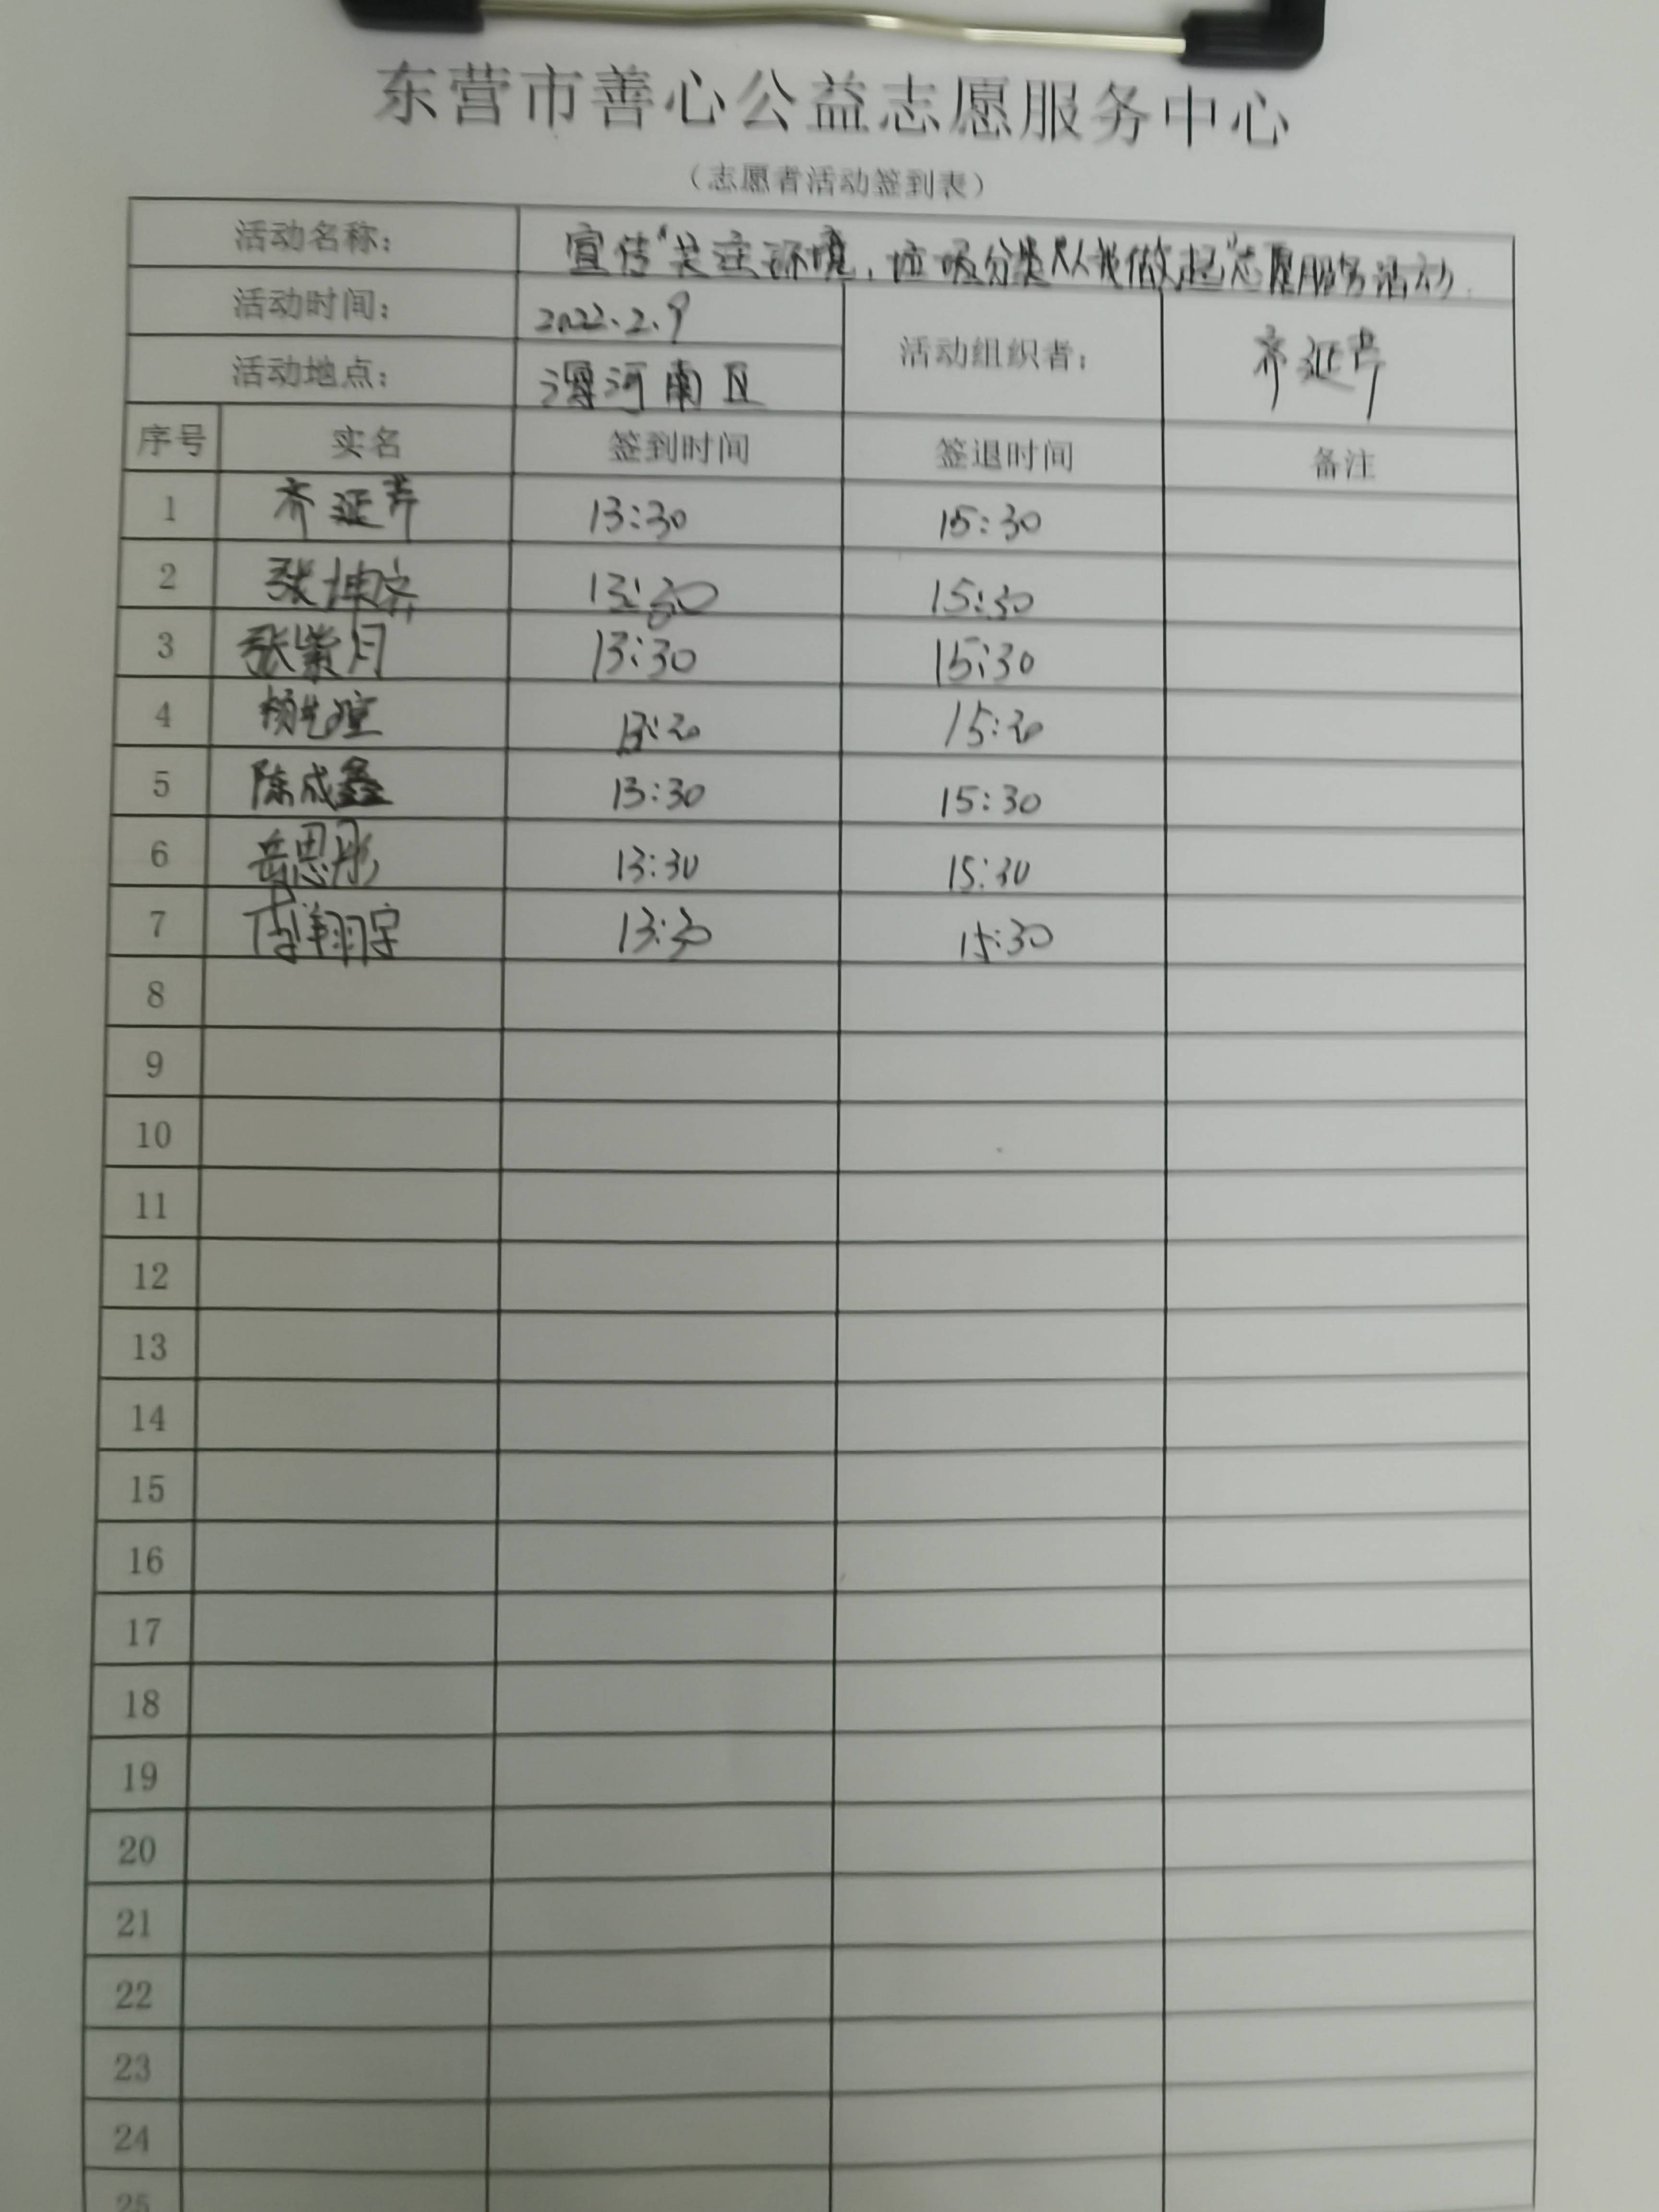 东营市善心公益志愿服务中心
（志愿者活动签到表）
活动名称： 宣传"关注环境，垃圾分类从我做起"志愿服务活动.
活动时间： 2022.2.9 活动组织者： 齐延芹
活动地点： 河南区
序号 实名 签到时间 签退时间 备注
1 齐延芹 13:30 15:30
2 张坤齐 13:30 15:30
3 张紫月 13:30 15:30
4 13:30 15:30
5 陈成鑫 13:30 15:30
6 岳思彤 13:30 15:30
7 李翔宇 13:30 15:30
8
9
10
11
12
13
14
15
16
17
18
19
20
21
22
23
24
25